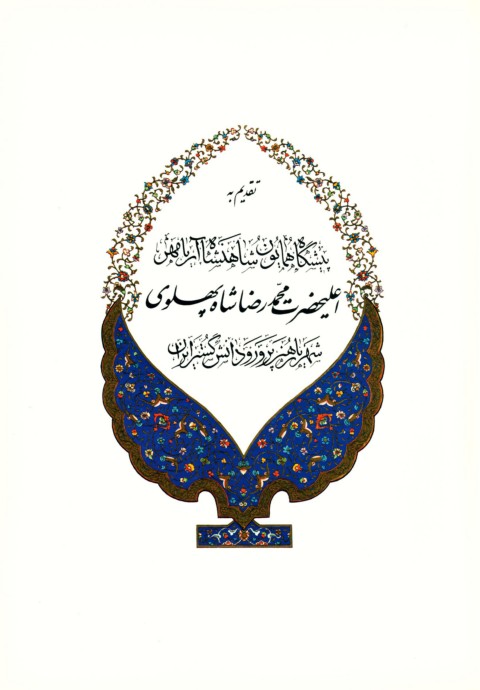 تقدیم به
پیشگاه همایون شاهنشاه آریامهر
اعلیحضرت محمد رضا شاه پهلوی
شهریار هنرپرور و دانش گستر ایران